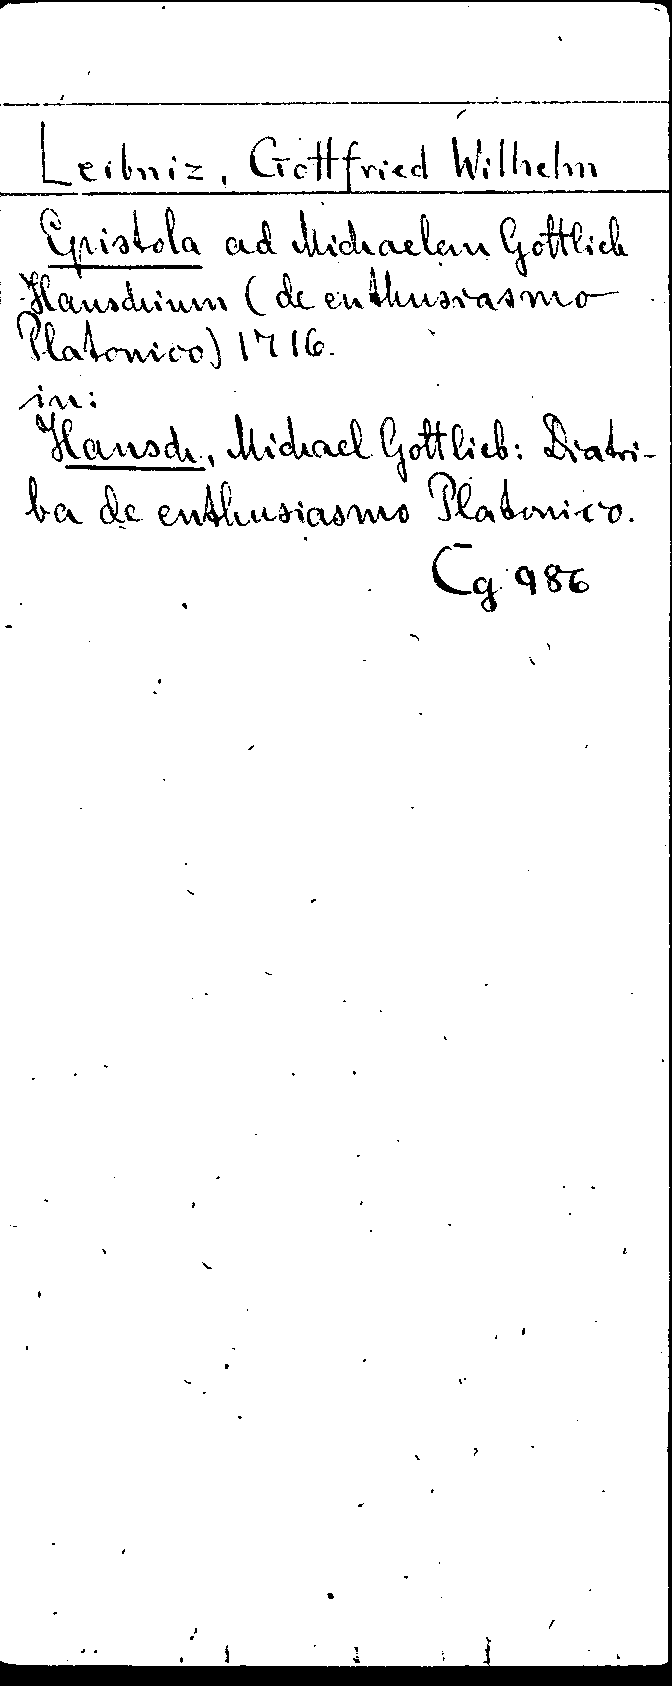 Leibniz, Gottfried Wilhelm
Epistola ad Michaelem Gottlieb
Hanschium (de enthusiasmo
Platonico) 1716.
in:
Hansch, Michael Gottlieb: Diatri-
ba de enthusiasmo Platonico.
Cg 986